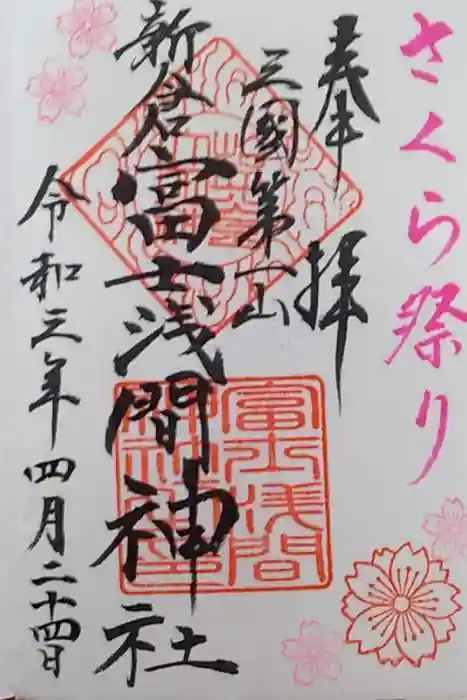 さくら祭り
奉拝
三國第一山
新倉富士浅間神社
令和三年四月二十四日
富士浅間
神社